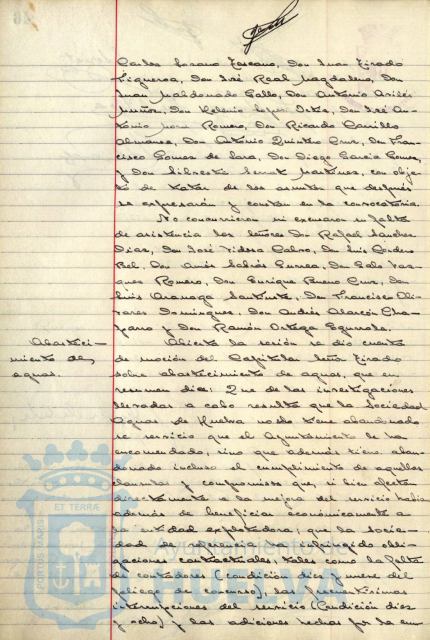 Carlos Lozano Toscano, Don Juan Tirado
Figueroa, Don José Real Magdaleno, Don
Juan Maldonado Gallo, Don Antonio
Muñoz, Don López Ortiz, Don José An-
tonio Mora Romero, Don Ricardo Carrillo
Almansa, Don Antonio Quintero Cruz, Don Fran-
cisco Gomez de Lara, Don Diego García Gomez,
y Don Silvestre Martínez, con obje-
to de tratar de los asuntos que después
se expresarán y constan en la convocatoria.
No concurrieron ni excusaron su falta
de asistencia los señores Don Rafael Sanchez
Diaz, Don José Tidera Calvo, Don Luis Cordero
Bel, Don Amós Sabrás Gurrea, Don Galo Vaz-
quez Romero, Don Enrique Bueno Cruz, Don
Luis Aranaga Santuste, Don Francisco Oli-
vares Dominguez, Don Andrés Alarcón Cha-
parro y Don Ramón Ortega Egurrola.
Abasteci-
miento de
aguas.
Abierta la sesión se dio cuenta
de moción del Capitular Señor Tirado
sobre abastecimiento de aguas, que en
resumen dice: Que de las investigaciones
llevadas a cabo resulta que la Sociedad
Aguas de Huelva no solo tiene abandonado
el servicio que el Ayuntamiento le ha
encomendado, sino que además tiene aban-
donado incluso el cumplimiento de aquellas
cláusulas y compromisos que, si bien afectan
directamente a la mejora del servicio habían
además de beneficiar económicamente a
la entidad explotadora; que la Socie-
dad de referencia ha infringido obli-
gaciones contractuales, tales como la falta
de contadores (condición diez y nueve del
pliego de concurso), las frecuentísimas
interrupciones del servicio (condición diez
y ocho) y las adiciones hechas por la em-
ET TERRÆ
Ayuntamiento de
HUELVA